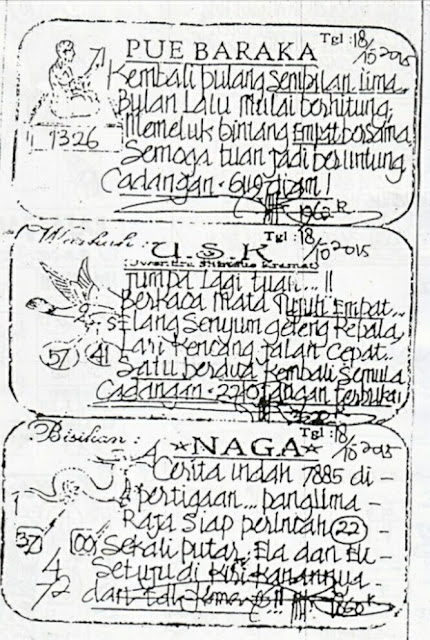 PUE BARAKA
Tgl : 18/10 2015
Kembali pulang sembilan lima
Bulan lalu mulai berhitung
Memeluk bintang Empat bersama
Semoga tuan jadi beruntung
Cadangan
1326
1962 R
Tgl : 18/10 2015
U S K
Jumpa lagi tuan...!!
Berkaca mata Tujuh Empat...
Elang Senyum geleng kepala,
Lari kencang jalan Cepat..
Satu berdua kembali semula
Cadangan
57
41
Bisikan :
NAGA
Tgl : 18/10 2015
Cerita indah 7885 di -
pertigaan... panglima -
Raja siap perintah 22 -
Sekali putar, Ela dan Eli -
Setuju di kiri kanannya -
37
00
4
/2